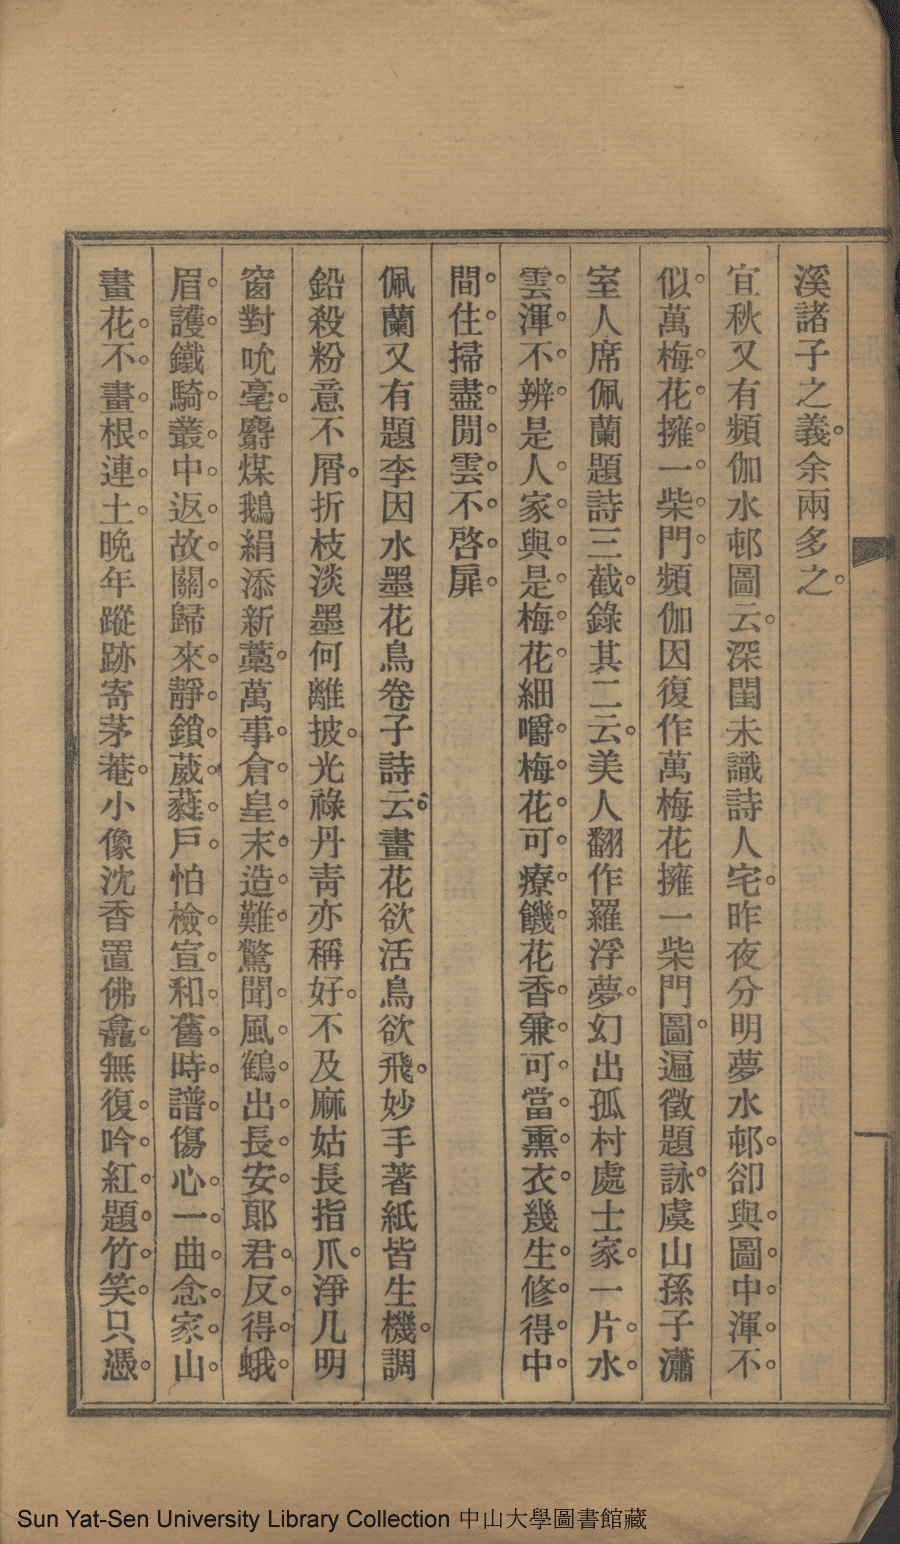 溪諸子之義余兩多之
宜秋又有頻伽水邨圖云深閨未識詩人宅昨夜分明夢水邨卻與圖中渾不
似萬梅花擁一柴門頻伽因復作萬梅花擁一柴門圖遍徵題詠虞山孫子瀟
室人席佩蘭題詩三截錄其二云美人翻作羅浮夢幻出孤村處士家一片水
雲渾不辨是人家與是梅花細嚼梅花可療饑花香兼可當熏衣幾生修得中
間住掃盡閒雲不啓扉
佩蘭又有題李因水墨花鳥卷子詩云畫花欲活鳥欲飛妙手著紙皆生機調
鉛殺粉意不屑折枝淡墨何離披光祿丹青亦稱好不及麻姑長指爪淨几明
窗對吮毫麝煤鵝絹添新藁萬事倉皇末造難驚聞風鶴出長安郎君反得蛾
眉護鐵騎叢中返故關歸來靜鎖葳蕤戶怕檢宣和舊時譜傷心一曲念家山
畫花不畫根連土晚年蹤跡寄茅菴小像沈香置佛龕無復吟紅題竹笑只憑
Sun Yat-Sen University Library Collection 中山大學圖書館藏